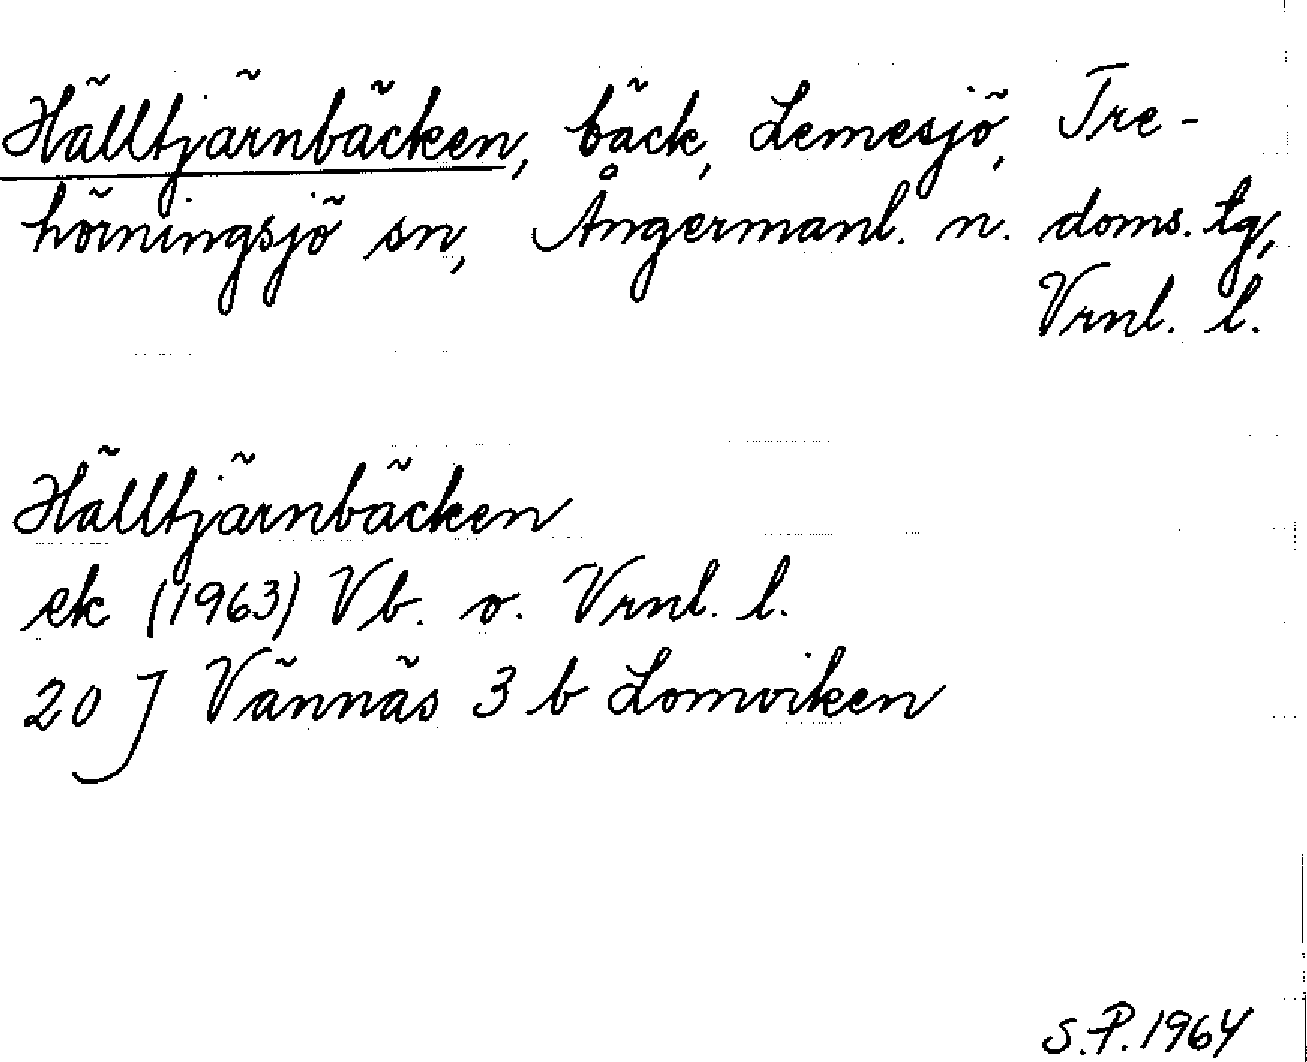 Hälltjärnbäcken, bäck, Lemesjö, Tre-
hörningsjö sn, Ångermanl. n. doms. tg,
Vrnl. l.
Hälltjärnbäcken
ek (1963) Vb. o. Vrnl. l.
20 J Vännäs 3 b Lomviken
S.P. 1964